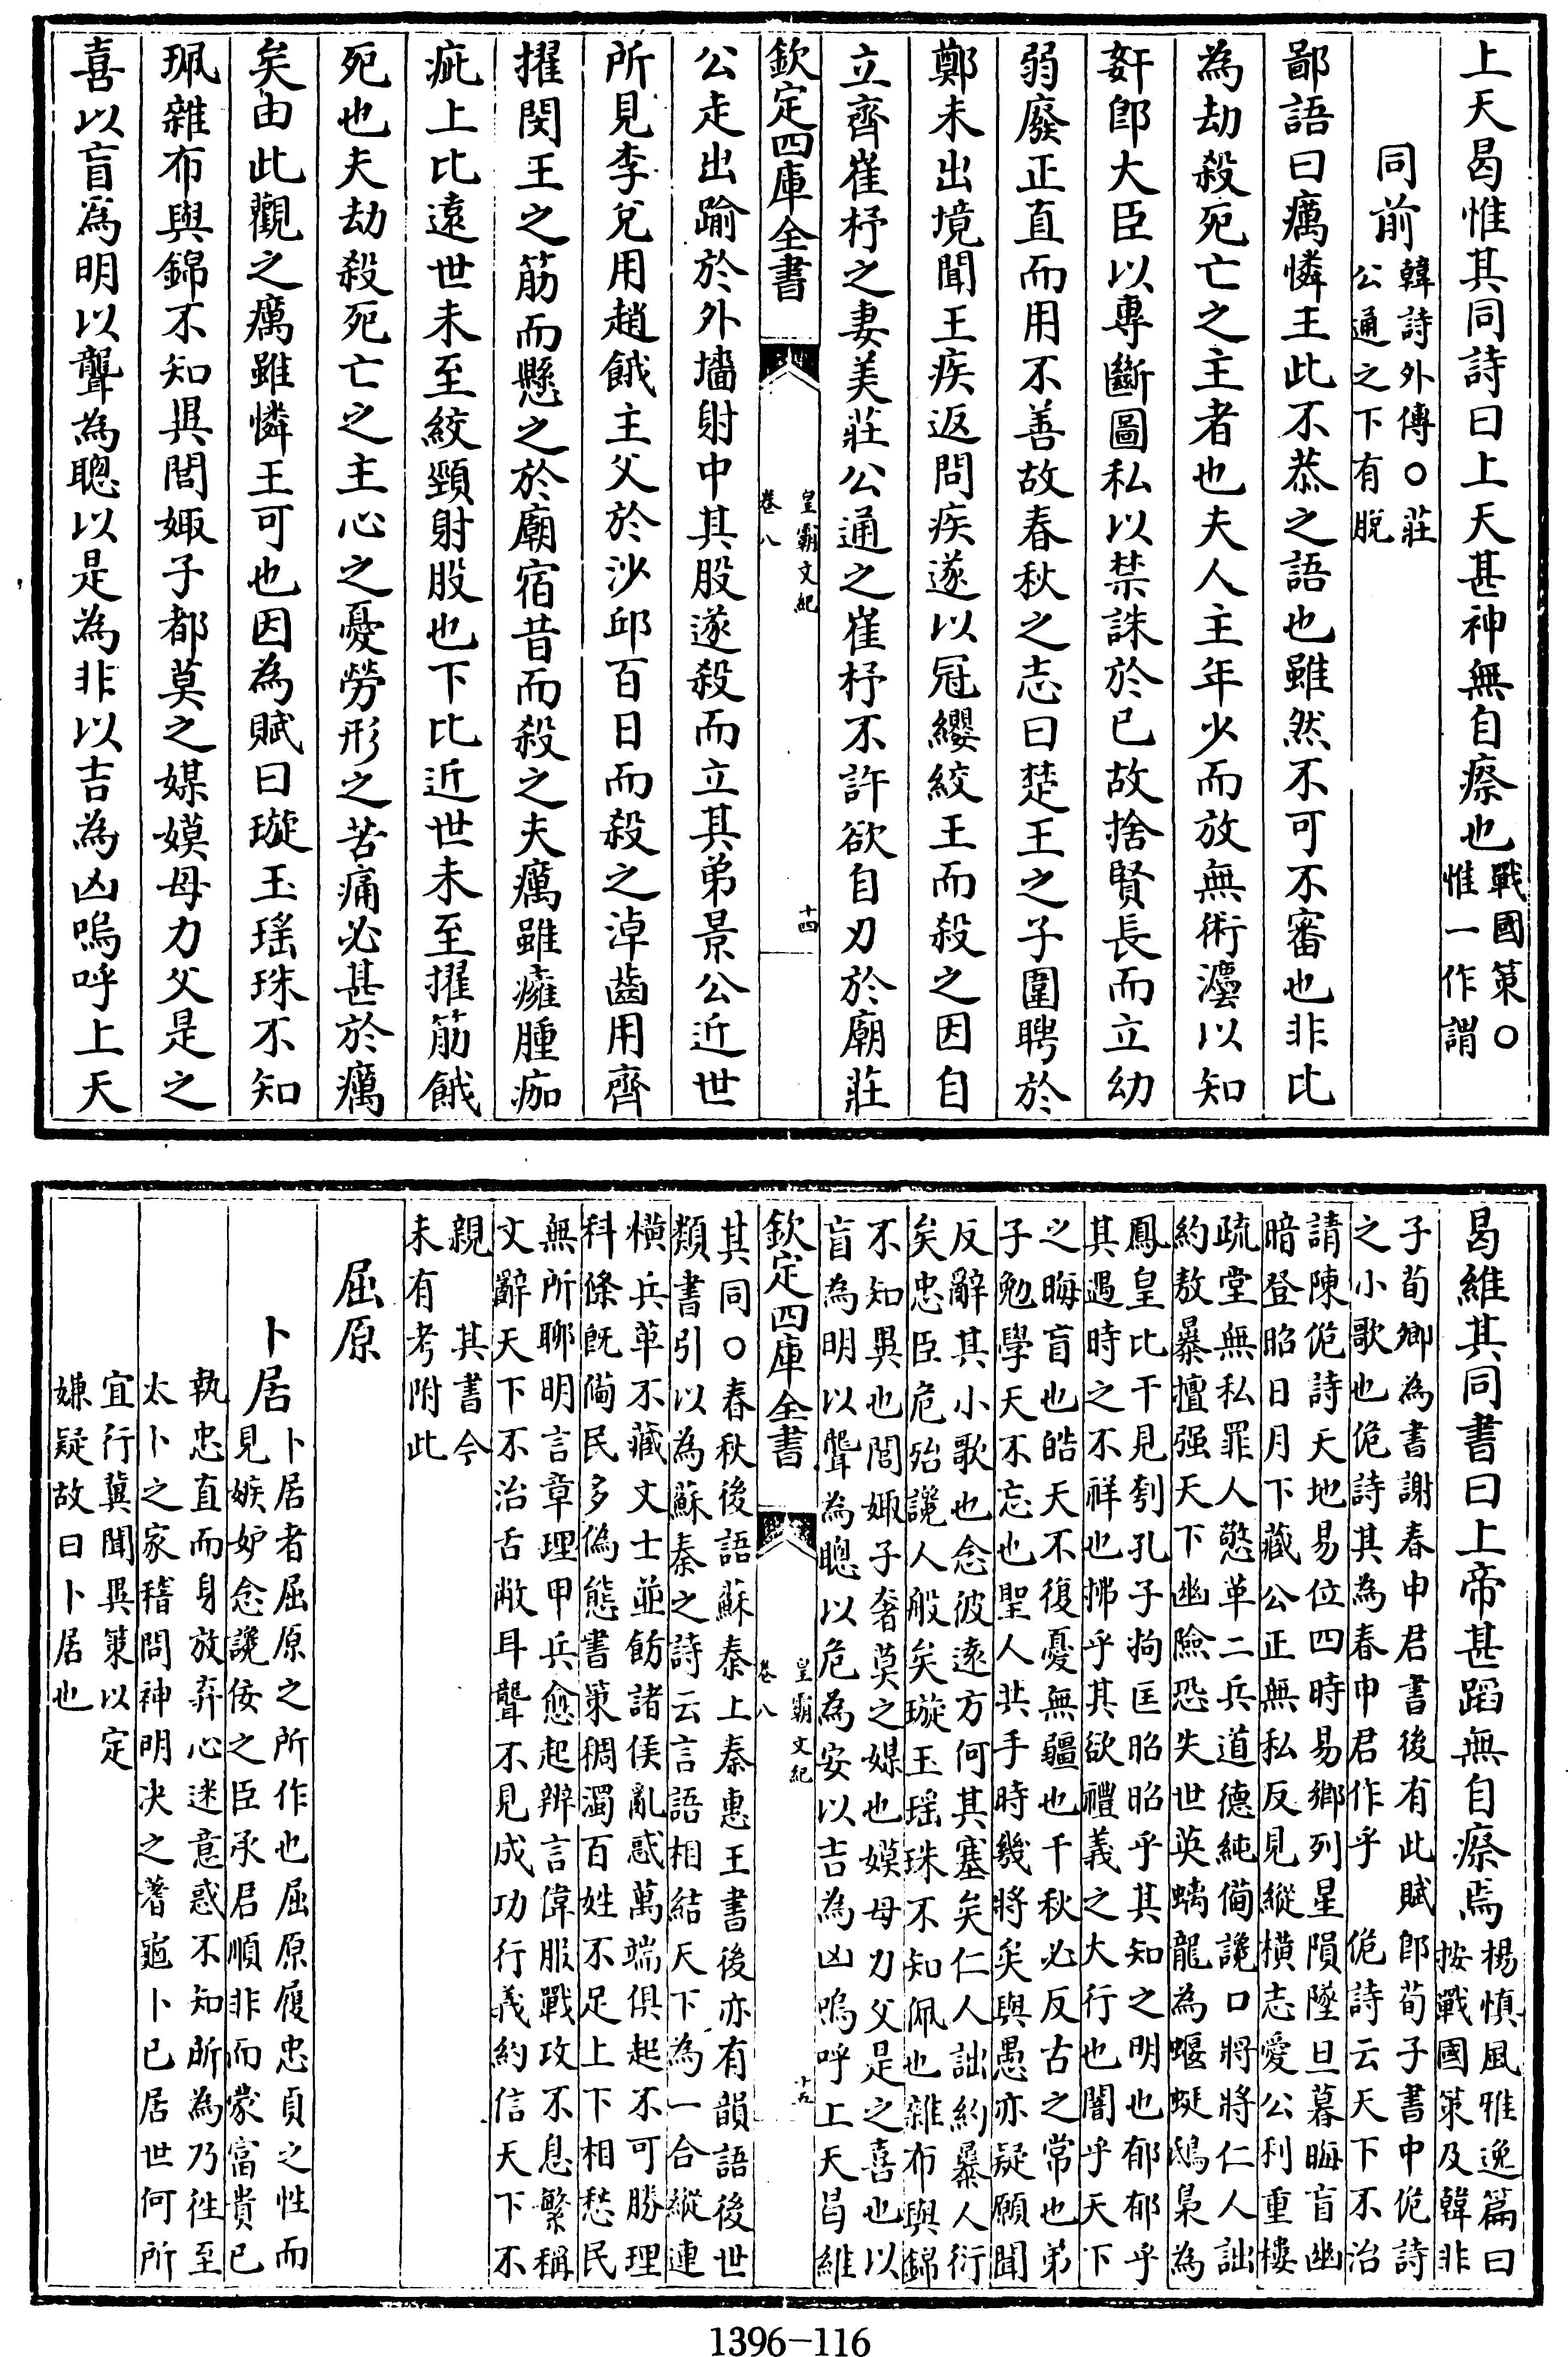 上天曷惟其同詩曰上天甚神無自瘵也戰國策○惟一作謂
同前韓詩外傳○莊公通之下有脫
鄙語曰癘憐王此不恭之語也雖然不可不審也非比
為劫殺死亡之主者也夫人主年少而放無術灋以知
奸即大臣以專斷圖私以禁誅於已故捨賢長而立幼
弱廢正直而用不善故春秋之志曰楚王之子圍聘於
鄭未出境聞王疾返問疾遂以冠纓絞王而殺之因自
立齊崔杼之妻美莊公通之崔杼不許欲自刃於廟莊
欽定四庫全書
皇霸文紀
卷八
十四
公走出踰於外墻射中其股遂殺而立其弟景公近世
所見李兌用趙餓主父於沙邱百日而殺之淖齒用齊
擢閔王之筋而懸之於廟宿昔而殺之夫癘雖癰腫痂
疵上比遠世未至絞頸射股也下比近世未至擢筋餓
死也夫劫殺死亡之主心之憂勞形之苦痛必甚於癘
矣由此觀之癘雖憐王可也因為賦曰璇玉瑤珠不知
珮雜布與錦不知異閭娵子都莫之媒嫫母力父是之
喜以盲為明以聾為聰以是為非以吉為凶嗚呼上天
曷維其同書曰上帝甚蹈無自瘵焉楊慎風雅逸篇曰按戰國策及韓非
子荀卿為書謝春申君書後有此賦即荀子書中佹詩
之小歌也佹詩其為春申君作乎 佹詩云天下不治
請陳佹詩天地易位四時易鄉列星隕墜旦暮晦盲幽
暗登昭日月下藏公正無私反見縱橫志愛公利重樓
疏堂無私罪人憼革二兵道德純備讒口將將仁人詘
約敖暴擅强天下幽險恐失世英螭龍為蝘蜓鴟梟為
鳳皇比干見刳孔子拘匡昭昭乎其知之明也郁郁乎
其遇時之不祥也拂乎其欲禮義之大行也闇乎天下
之晦盲也皓天不復憂無疆也千秋必反古之常也弟
子勉學天不忘也聖人共手時幾將矣與愚亦疑願聞
反辭其小歌也念彼遠方何其塞矣仁人詘約暴人衍
矣忠臣危殆讒人般矣璇玉瑤珠不知佩也雜布與錦
不知異也閭娵子奢莫之媒也嫫母刀父是之喜也以
盲為明以聾為聰以危為安以吉為凶嗚呼上天曷維
欽定四庫全書
皇霸文紀
卷八
十五
其同○春秋後語蘇秦上秦惠王書後亦有韻語後世
類書引以為蘇秦之詩云言語相結天下為一合縱連
橫兵革不藏文士並飭諸侯亂惑萬端俱起不可勝理
科條既備民多偽態書策稠濁百姓不足上下相愁民
無所聊明言章理甲兵愈起辨言偉服戰攻不息繁稱
文辭天下不治舌敝耳聾不見成功行義約信天下不
親 其書今
未有考附此
屈原
卜居卜居者屈原之所作也屈原履忠貞之性而
見嫉妒念讒佞之臣承君順非而蒙富貴已
執忠直而身放弃心迷意惑不知所為乃徃至
太卜之家稽問神明决之蓍龜卜已居世何所
宜行冀聞異策以定
嫌疑故曰卜居也
1396-116